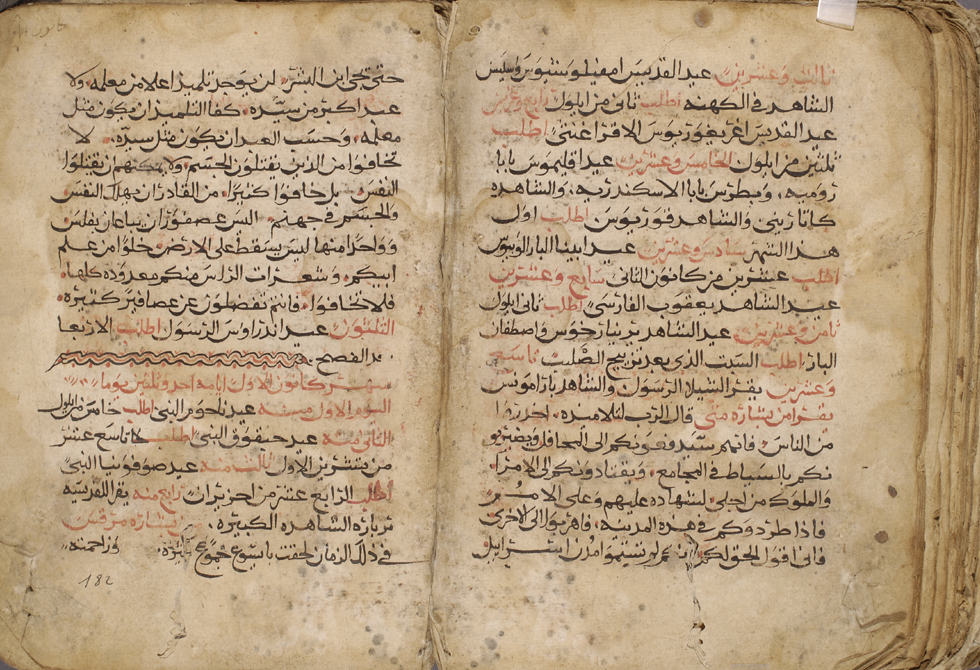 ثالث وعشرين عيد القديس امفيلوشيوس
الشاهد في الكهنه اطلب ثاني من ايلول رابع وعشرين
عيد القديس اغريغوريوس الاقراغنتي اطلب
ثلثين من ايلول الخامس وعشرين عيد اقليموس بابا
روميه وبطرس بابا الاسكندريه والشاهده
كاتاريني والشاهد قوريوس اطلب اول
هذا الشهر سادس وعشرين عيد ابينا البار
اطلب عشرين من كانون الثاني سابع وعشرين
عيد الشاهد يعقوب الفارسي اطلب ثاني ايلول
ثامن وعشرين عيد الشاهد واصطفان
البار اطلب السبت الذي بعد الصلب تاسع
وعشرين يقرا الرسول والشاهد بارامونس
يقرا من بشارة متى قال الرب لتلاميذه احذروا
من الناس فانهم سيدفعونكم الى المحافل ويضربو
نكم بالسياط في المجامع وتقتادونكم الى الامرا
والملوك من اجلي لشهاده عليهم وعلى الامم
فاذا طردوكم في هذه المدينه فاهربوا الى الاخرى
فاني اقول الحق لكم انكم لن تتموا مدن اسراييل
حتى يجي ابن البشر لن يوجد تلميذ اعلا من معلمه ولا
عبد اكبر من سيده كفا التلميذ ان يكون مثل
معلمه وحسب العبد ان يكون مثل سيده لا
تخافوا من الذين يقتلون الجسم ولا يمكنهم ان يقتلوا
النفس بل خافوا كثيرا من القادر ان يهلك النفس
والجسم في جهنم اليس عصفوران يباعان بفلس
وواحد منها ليس يسقط على الارض خلوا من علم
ابيكم وشعرات الراس منكم معدوده كلها
فلا تخافوا فانتم تفضلون عن عصافير كثيره
الثلثون عيد اندراوس الرسول اطلب الاربعا
الفصح
شهر كانون الاول ايامه احد وثلثين يوما
اليوم الاول منه عيد ناحوم النبي اطلب خامس من ايلول
الثاني منه عيد حبقوق النبي اطلب تاسع عشر
من تشرين الاول ثالث منه عيد صوفونيا النبي
اطلب الرابع عشر من حزيران رابع منه يقرا للقديسه
بربارة الشاهده الكبيره بشارة مرقس
في ذلك الزمان لحقت بايسوع جموع كثيرة وزاحمته
182